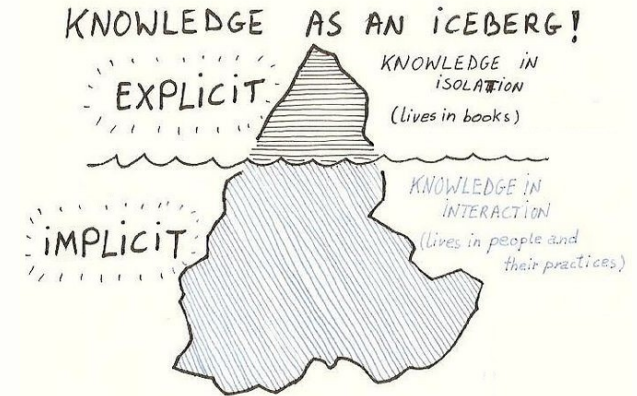 KNOWLEDGE AS AN ICEBERG!
EXPLICIT
KNOWLEDGE IN
ISOLATION
(lives in books)
IMPLICIT
KNOWLEDGE IN
INTERACTION
(lives in people and
their practices)